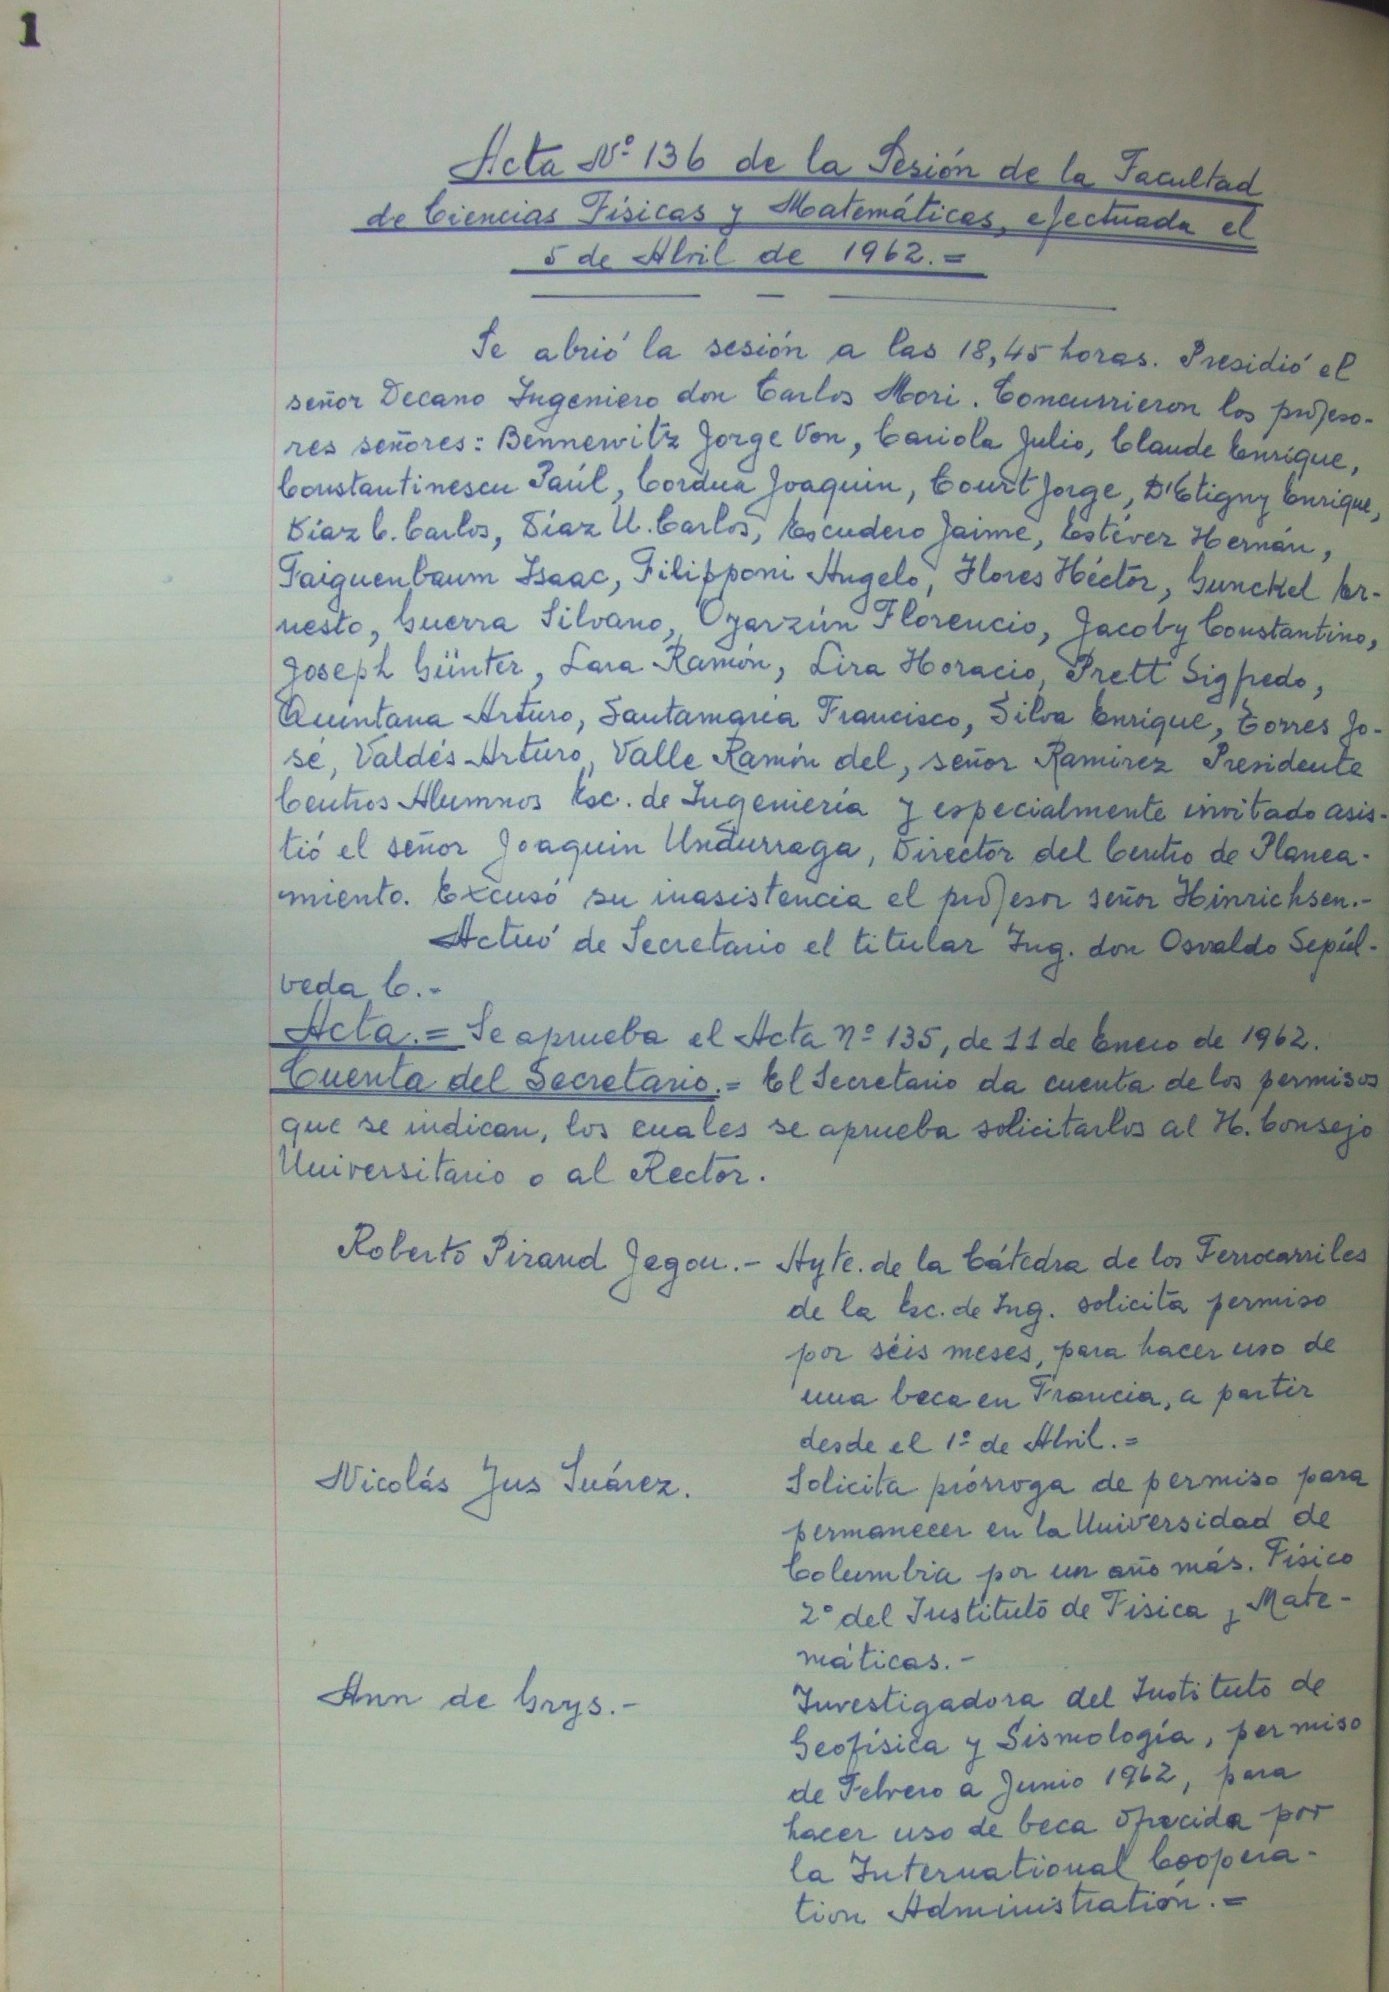 1
Acta Nº 136 de la Sesión de la Facultad
de Ciencias Físicas y Matemáticas, efectuada el
5 de Abril de 1962.=
Se abrió la sesión a las 18,45 horas. Presidió el
señor Decano Ingeniero don Carlos Mori. Concurrieron los profeso-
res señores: Bennewitz Jorge Von, Cariola Julio, Claude Enrique,
Constantinescu Paúl, Cordua Joaquin, Court Jorge, D'Etigny Enrique,
Díaz C. Carlos, Díaz U. Carlos, Escudero Jaime, Estévez Hernán,
Faiguenbaum Isaac, Filipponi Angelo, Flores Héctor, Gunckel Er-
nesto, Guerra Silvano, Oyarzún Florencio, Jacoby Constantino,
Joseph Günter, Lara Ramón, Lira Horacio, Prett Sigfredo,
Quintana Arturo, Santamaría Francisco, Silva Enrique, Torres Jo-
sé, Valdés Arturo, Valle Ramón del, señor Ramírez Presidente
Centros Alumnos Esc. de Ingeniería y especialmente invitado asis-
tió el señor Joaquin Undurraga, Director del Centro de Planea-
miento. Excusó su inasistencia el profesor señor Hinrichsen.-
Actuó de Secretario el titular Ing. don Osvaldo Sepúl-
veda C.-
Acta.= Se aprueba el Acta nº 135, de 11 de Enero de 1962.
Cuenta del Secretario.= El Secretario da cuenta de los permisos
que se indican, los cuales se aprueba solicitarlos al H. Consejo
Universitario o al Rector.
Roberto Piraud Jegou.- Ayte. de la Cátedra de los Ferrocarriles
de la Esc. de Ing. solicita permiso
por séis meses, para hacer uso de
una beca en Francia, a partir
desde el 1º de Abril.=
Nicolás Jus Suárez. Solicita prórroga de permiso para
permanecer en la Universidad de
Columbia por un año más. Físico
2º del Instituto de Física y Mate-
máticas.-
Ann de Grys.- Investigadora del Instituto de
Geofísica y Sismología, permiso
de Febrero a Junio 1962, para
hacer uso de beca ofrecida por
la International Coopera-
tion Administratión.=